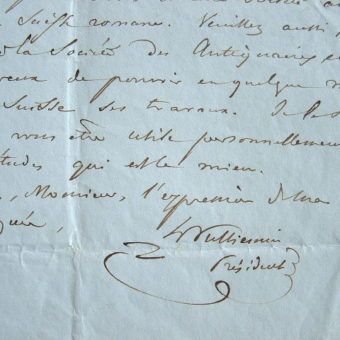 Suisse romane. Veuillez aussi,
la Société des Antiquaires e
reux de pouvoir en quelque
Suisse ses travaux. Je
vous être utile personnellemen
tudes qui est le mien.
, Monsieur, l'expression de ma
L Vulliemin
Président